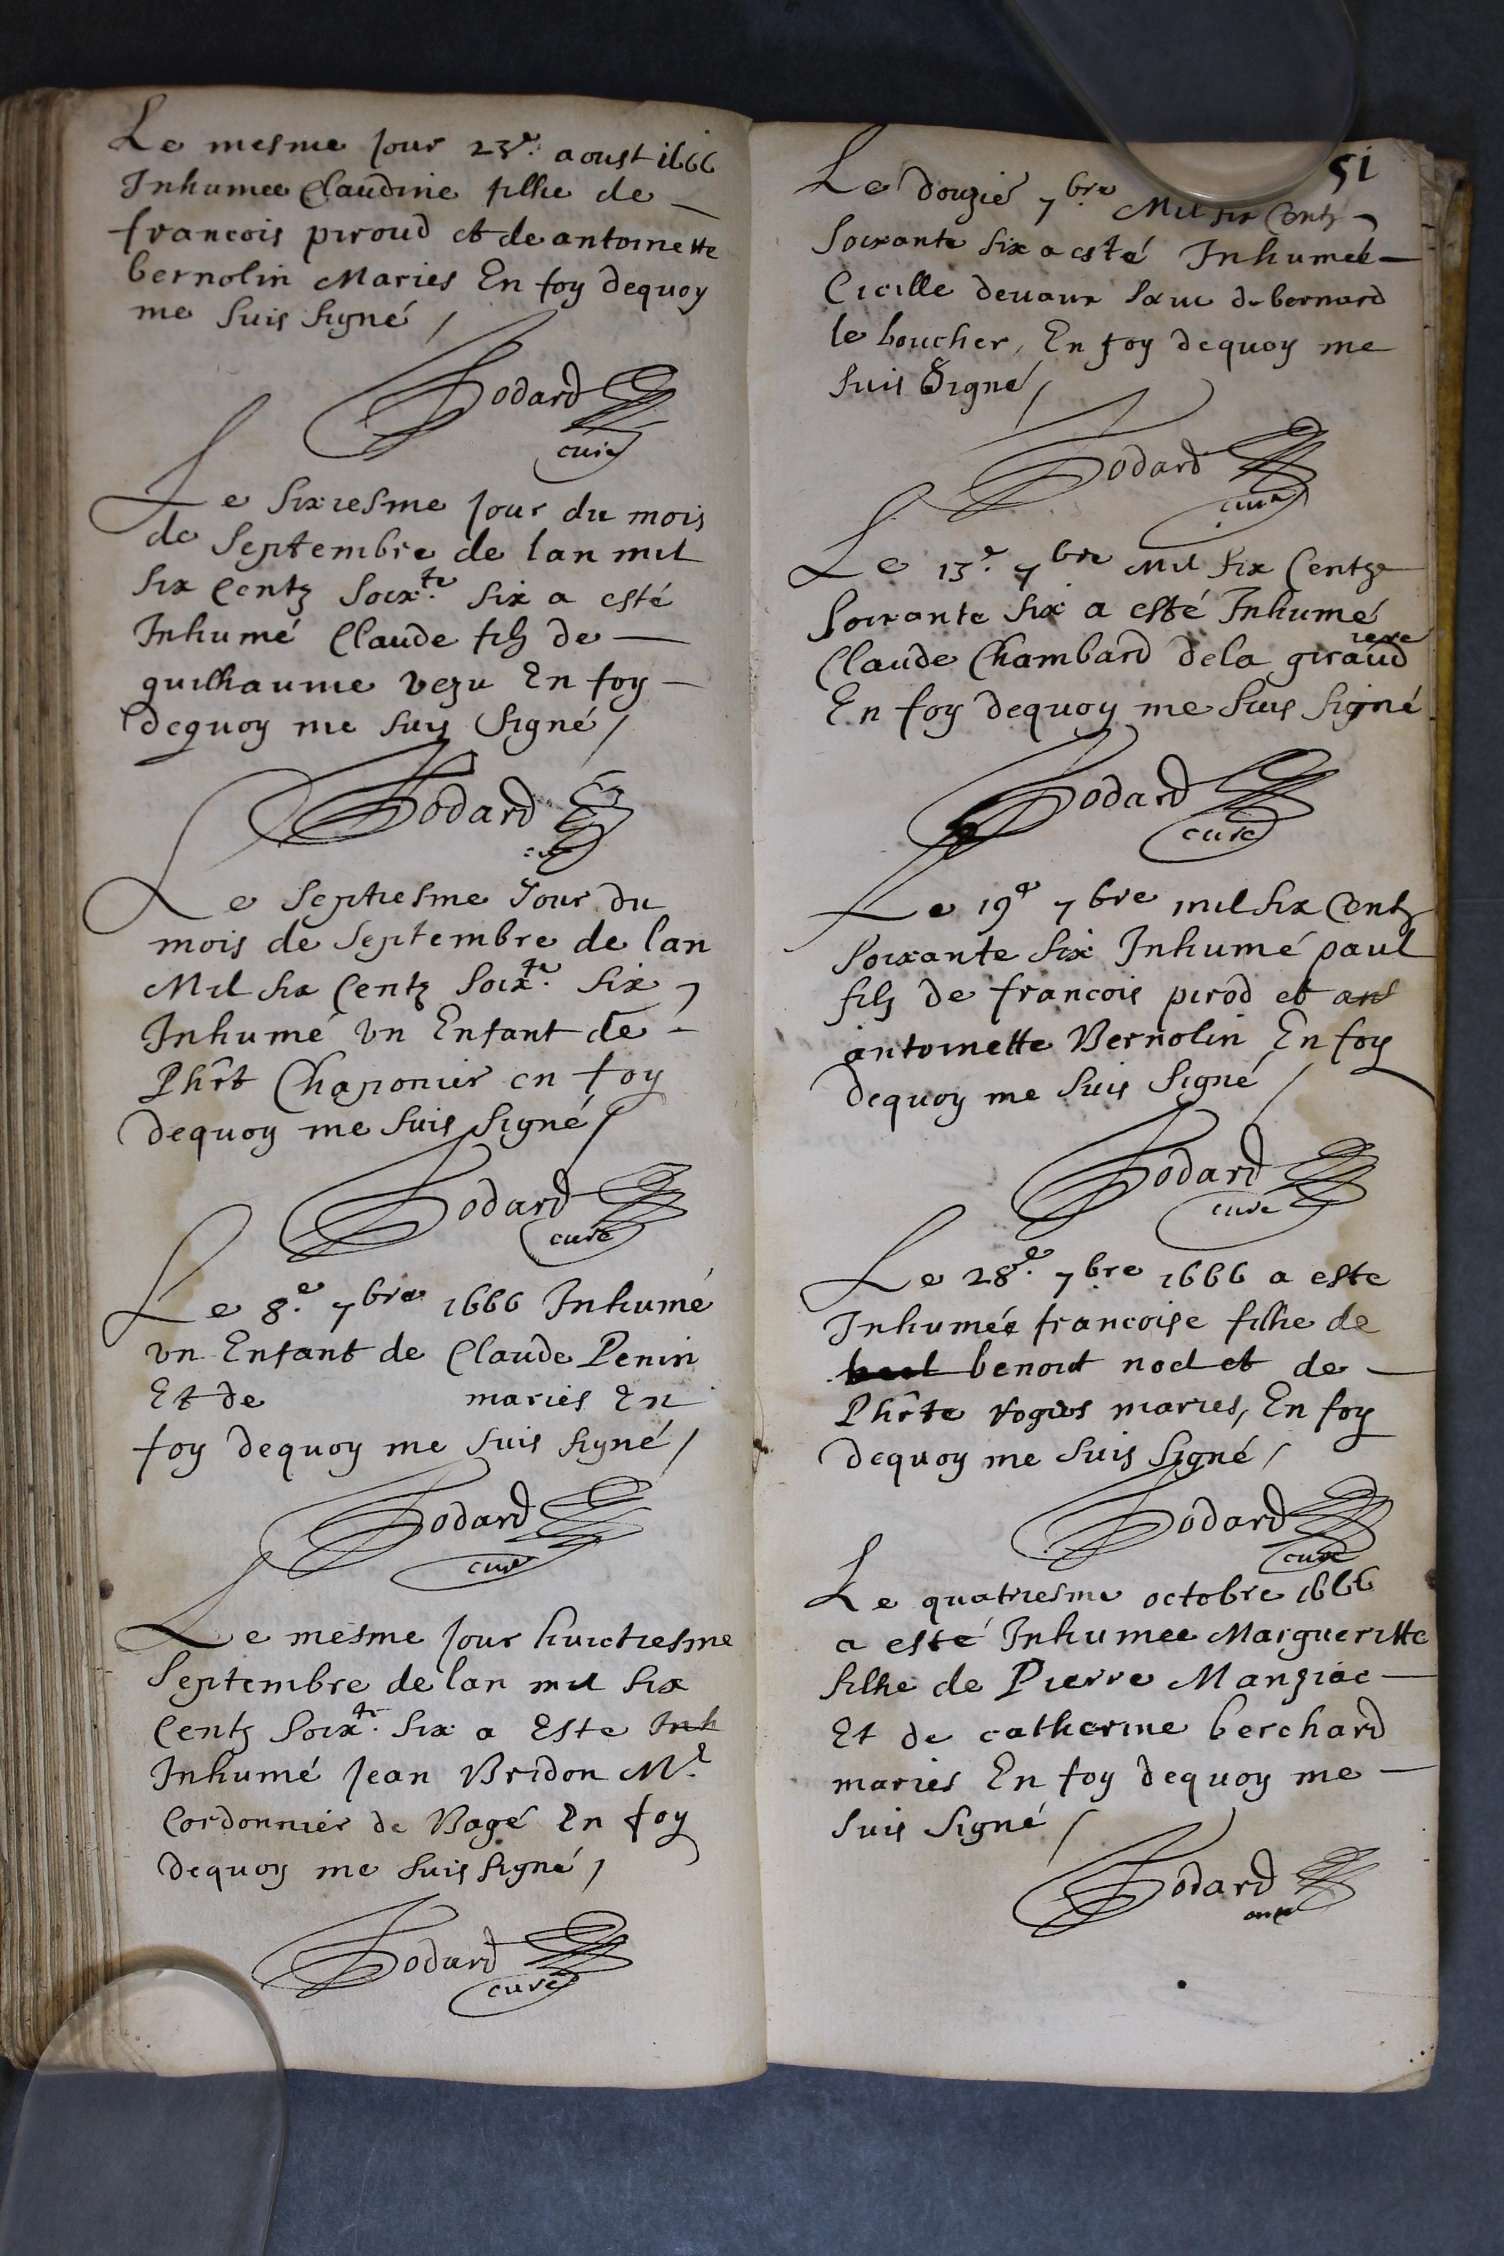 Le mesme Jour 23e. aoust 1666
Inhumee Claudine filhe de
francois piroud et de antoinette
bernolin Mariés En foy dequoy
me suis signé /
Godard
curé
Le sixiesme Jour du mois
de Septembre de lan mil
six Centz soixte. six a esté
Inhumé Claude filz de
guilhaume vezu En foy
dequoy me suis Signé /
Godard
Le Septiesme Jour du
mois de Septembre de lan
Mil six Centz soixte. six
Inhumé Vn Enfant de
Phrt Chaponier en foy
dequoy me suis signé /
Godard
curé
Le 8e. 7bre 1666 Inhumé
vn Enfant de Claude Penin
Et de mariés En
foy dequoy me suis signé /
Godard
curé
Le mesme Jour huictiesme
Septembre de lan mil six
Centz soixte. six a Este Inh
Inhumé Jean Bridon Me
Cordonnier de Bagé En foy
dequoy me suis signé /
Godard
curé
51
Le douzie 7bre Mil six Centz
soixante six a esté Inhumée
Cicille devaux de bernard
le boucher, En foy dequoy me
suis Signé /
Godard
curé
Le 13e. 7bre Mil six Centz
soixante six a esté Inhumé
Claude Chambard de la giraudiere
En foy dequoy me suis signé
Godard
curé
Le 19e 7bre mil six Centz
soixante six Inhumé paul
filz de francois pirod et ant
antoinette Bernolin En foy
dequoy me suis signé /
Godard
curé
Le 28e. 7bre 1666 a este
Inhumée francoise filhe de
benoist nod et de
Phrte mariés, En foy
dequoy me suis signé /
Godard
curé
Le quatriesme octobre 1666
a esté Inhumee Margueritte
filhe de Pierre Manziac
Et de catherine berchard
mariés En foy dequoy me
suis signé /
Godard
curé